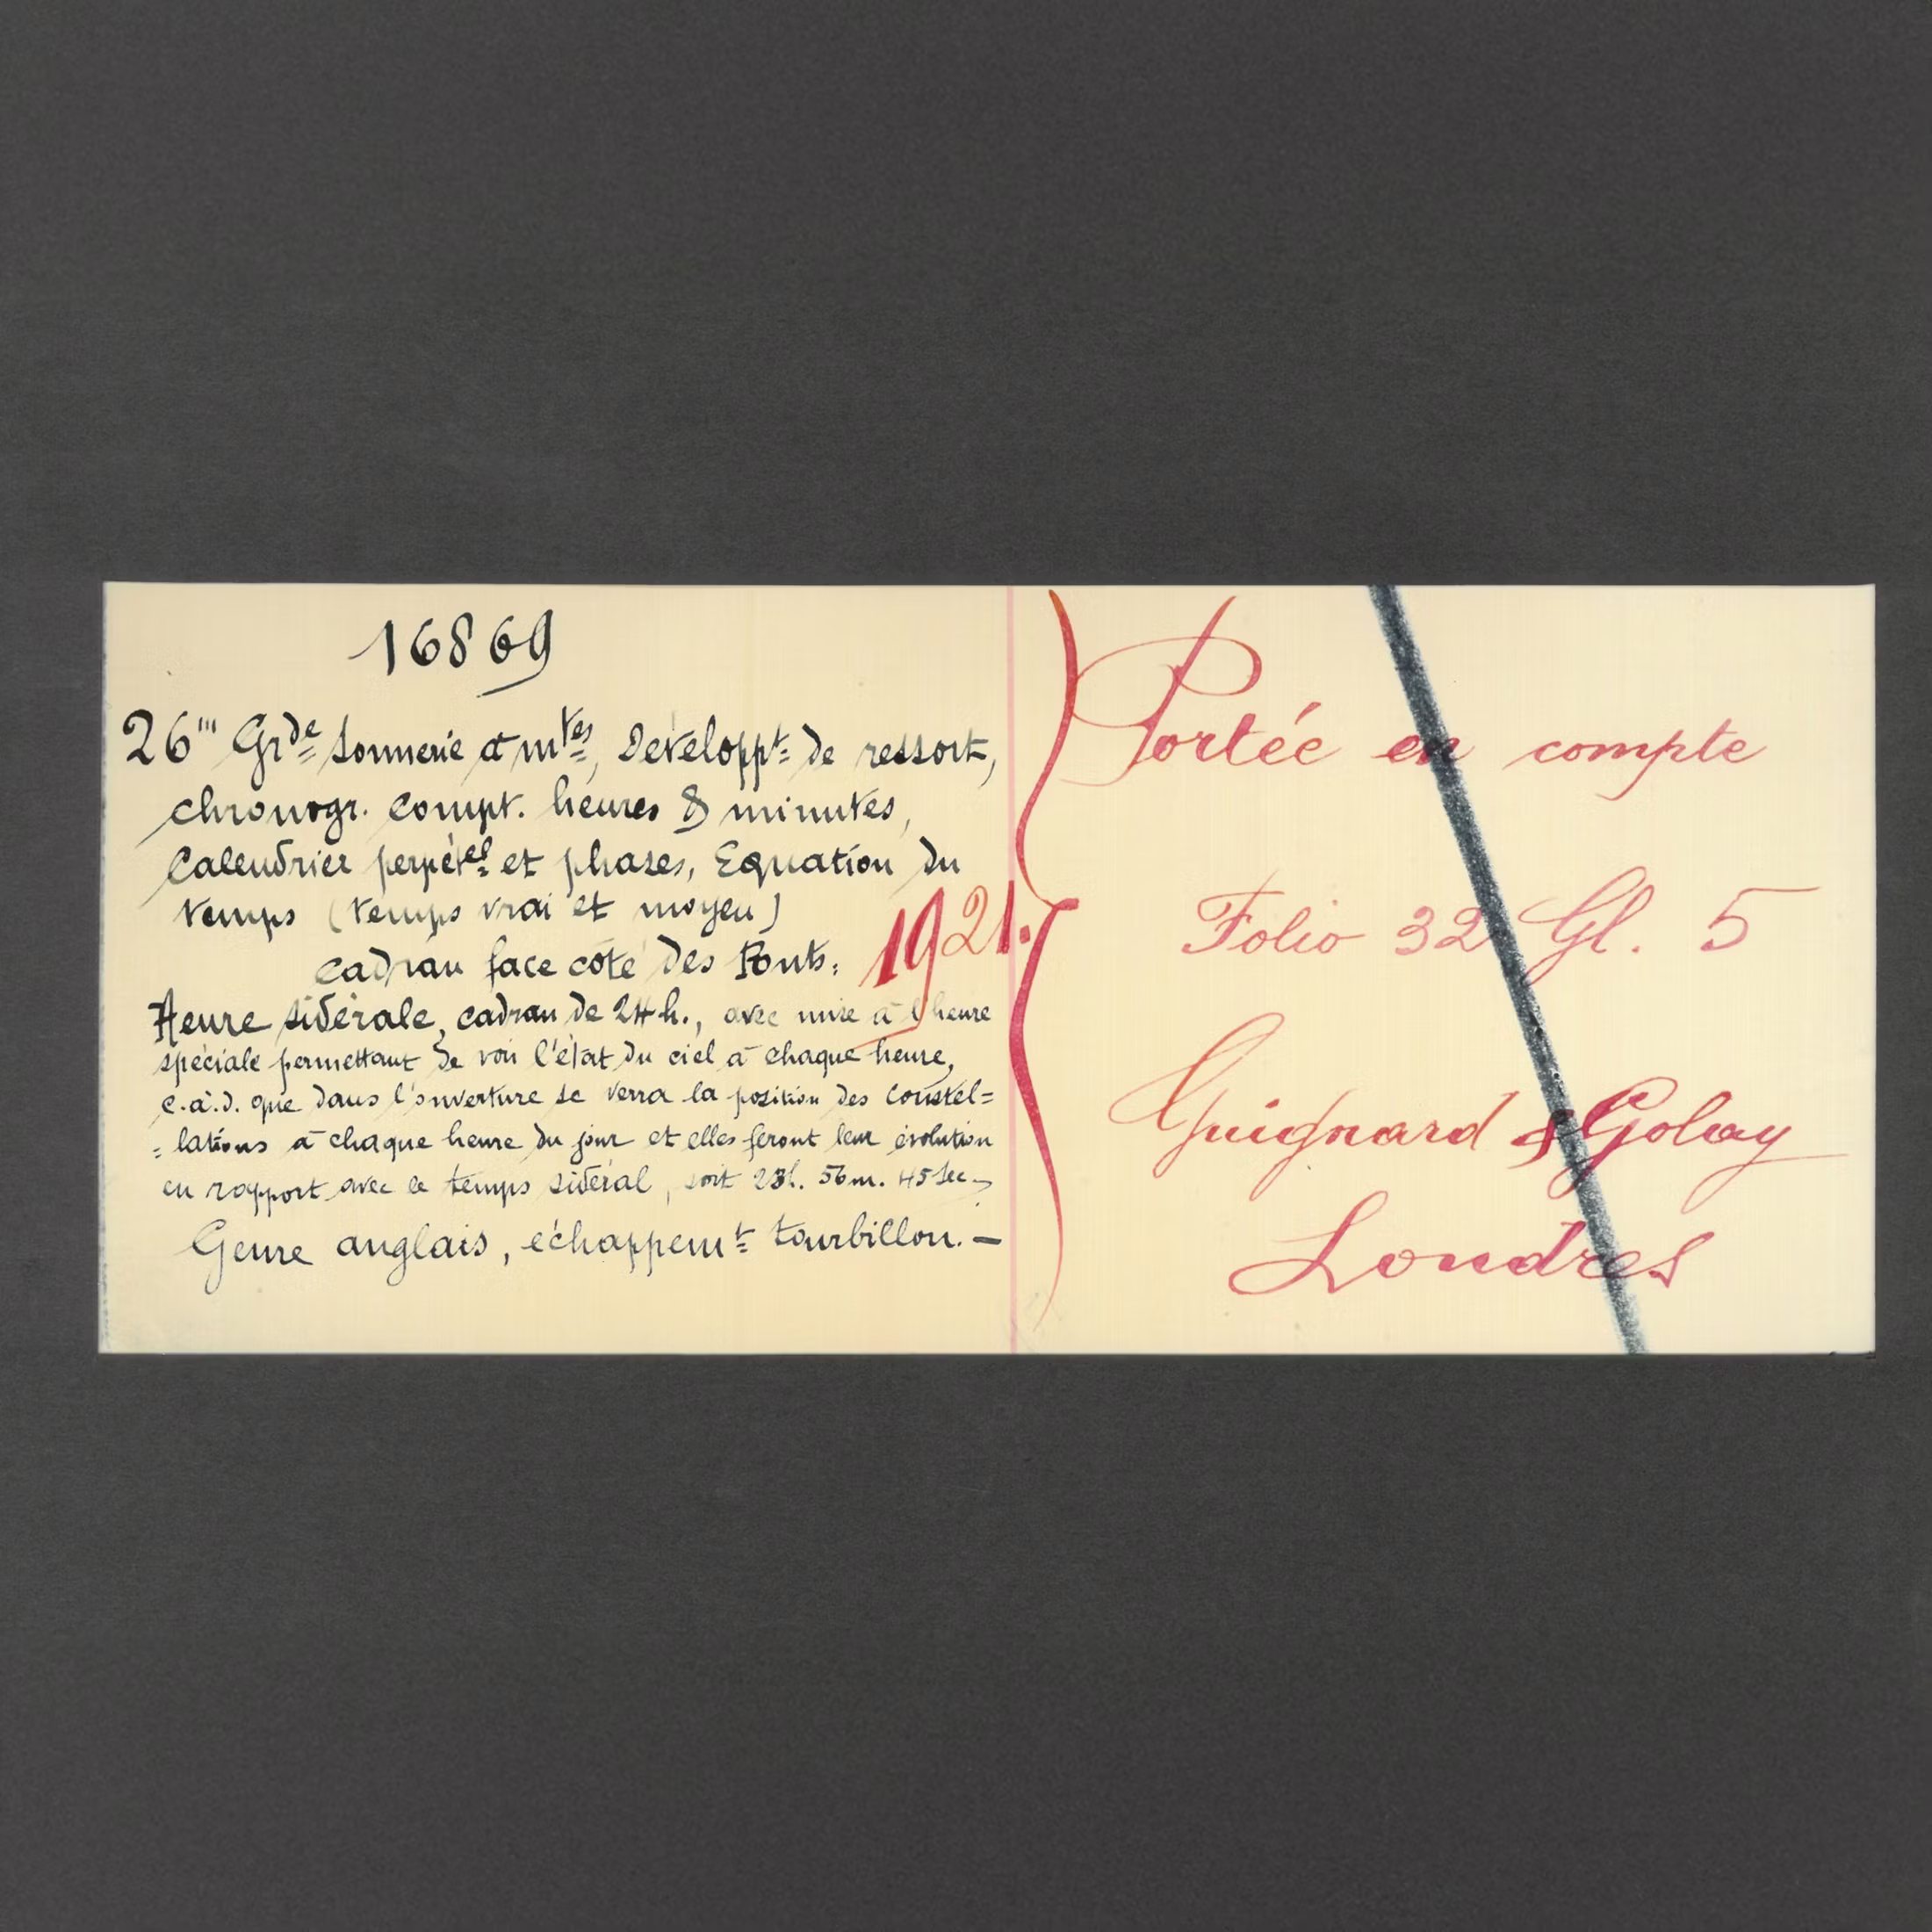 16869
26''' Grde sonnerie et mtes, Développt de ressort,
chronogr. compt. heures & minutes,
Calendrier perpétel et phases, Equation du
temps (temps vrai et moyen)
cadran face côté des Ponts:
1921.
Heure sidérale, cadran de 24 h., avec mise à l'heure
spéciale permettant de voir l'état du ciel à chaque heure,
c.à.d. que dans l'ouverture se verra la position des constel=
=lations à chaque heure du jour et elles feront leur évolution
en rapport avec le temps sidéral, soit 23h. 56m. 45 sec.
Genre anglais, échappemt tourbillon. —
Portée en compte
Folio 32 Gl. 5
Guignard & Golay
Londres